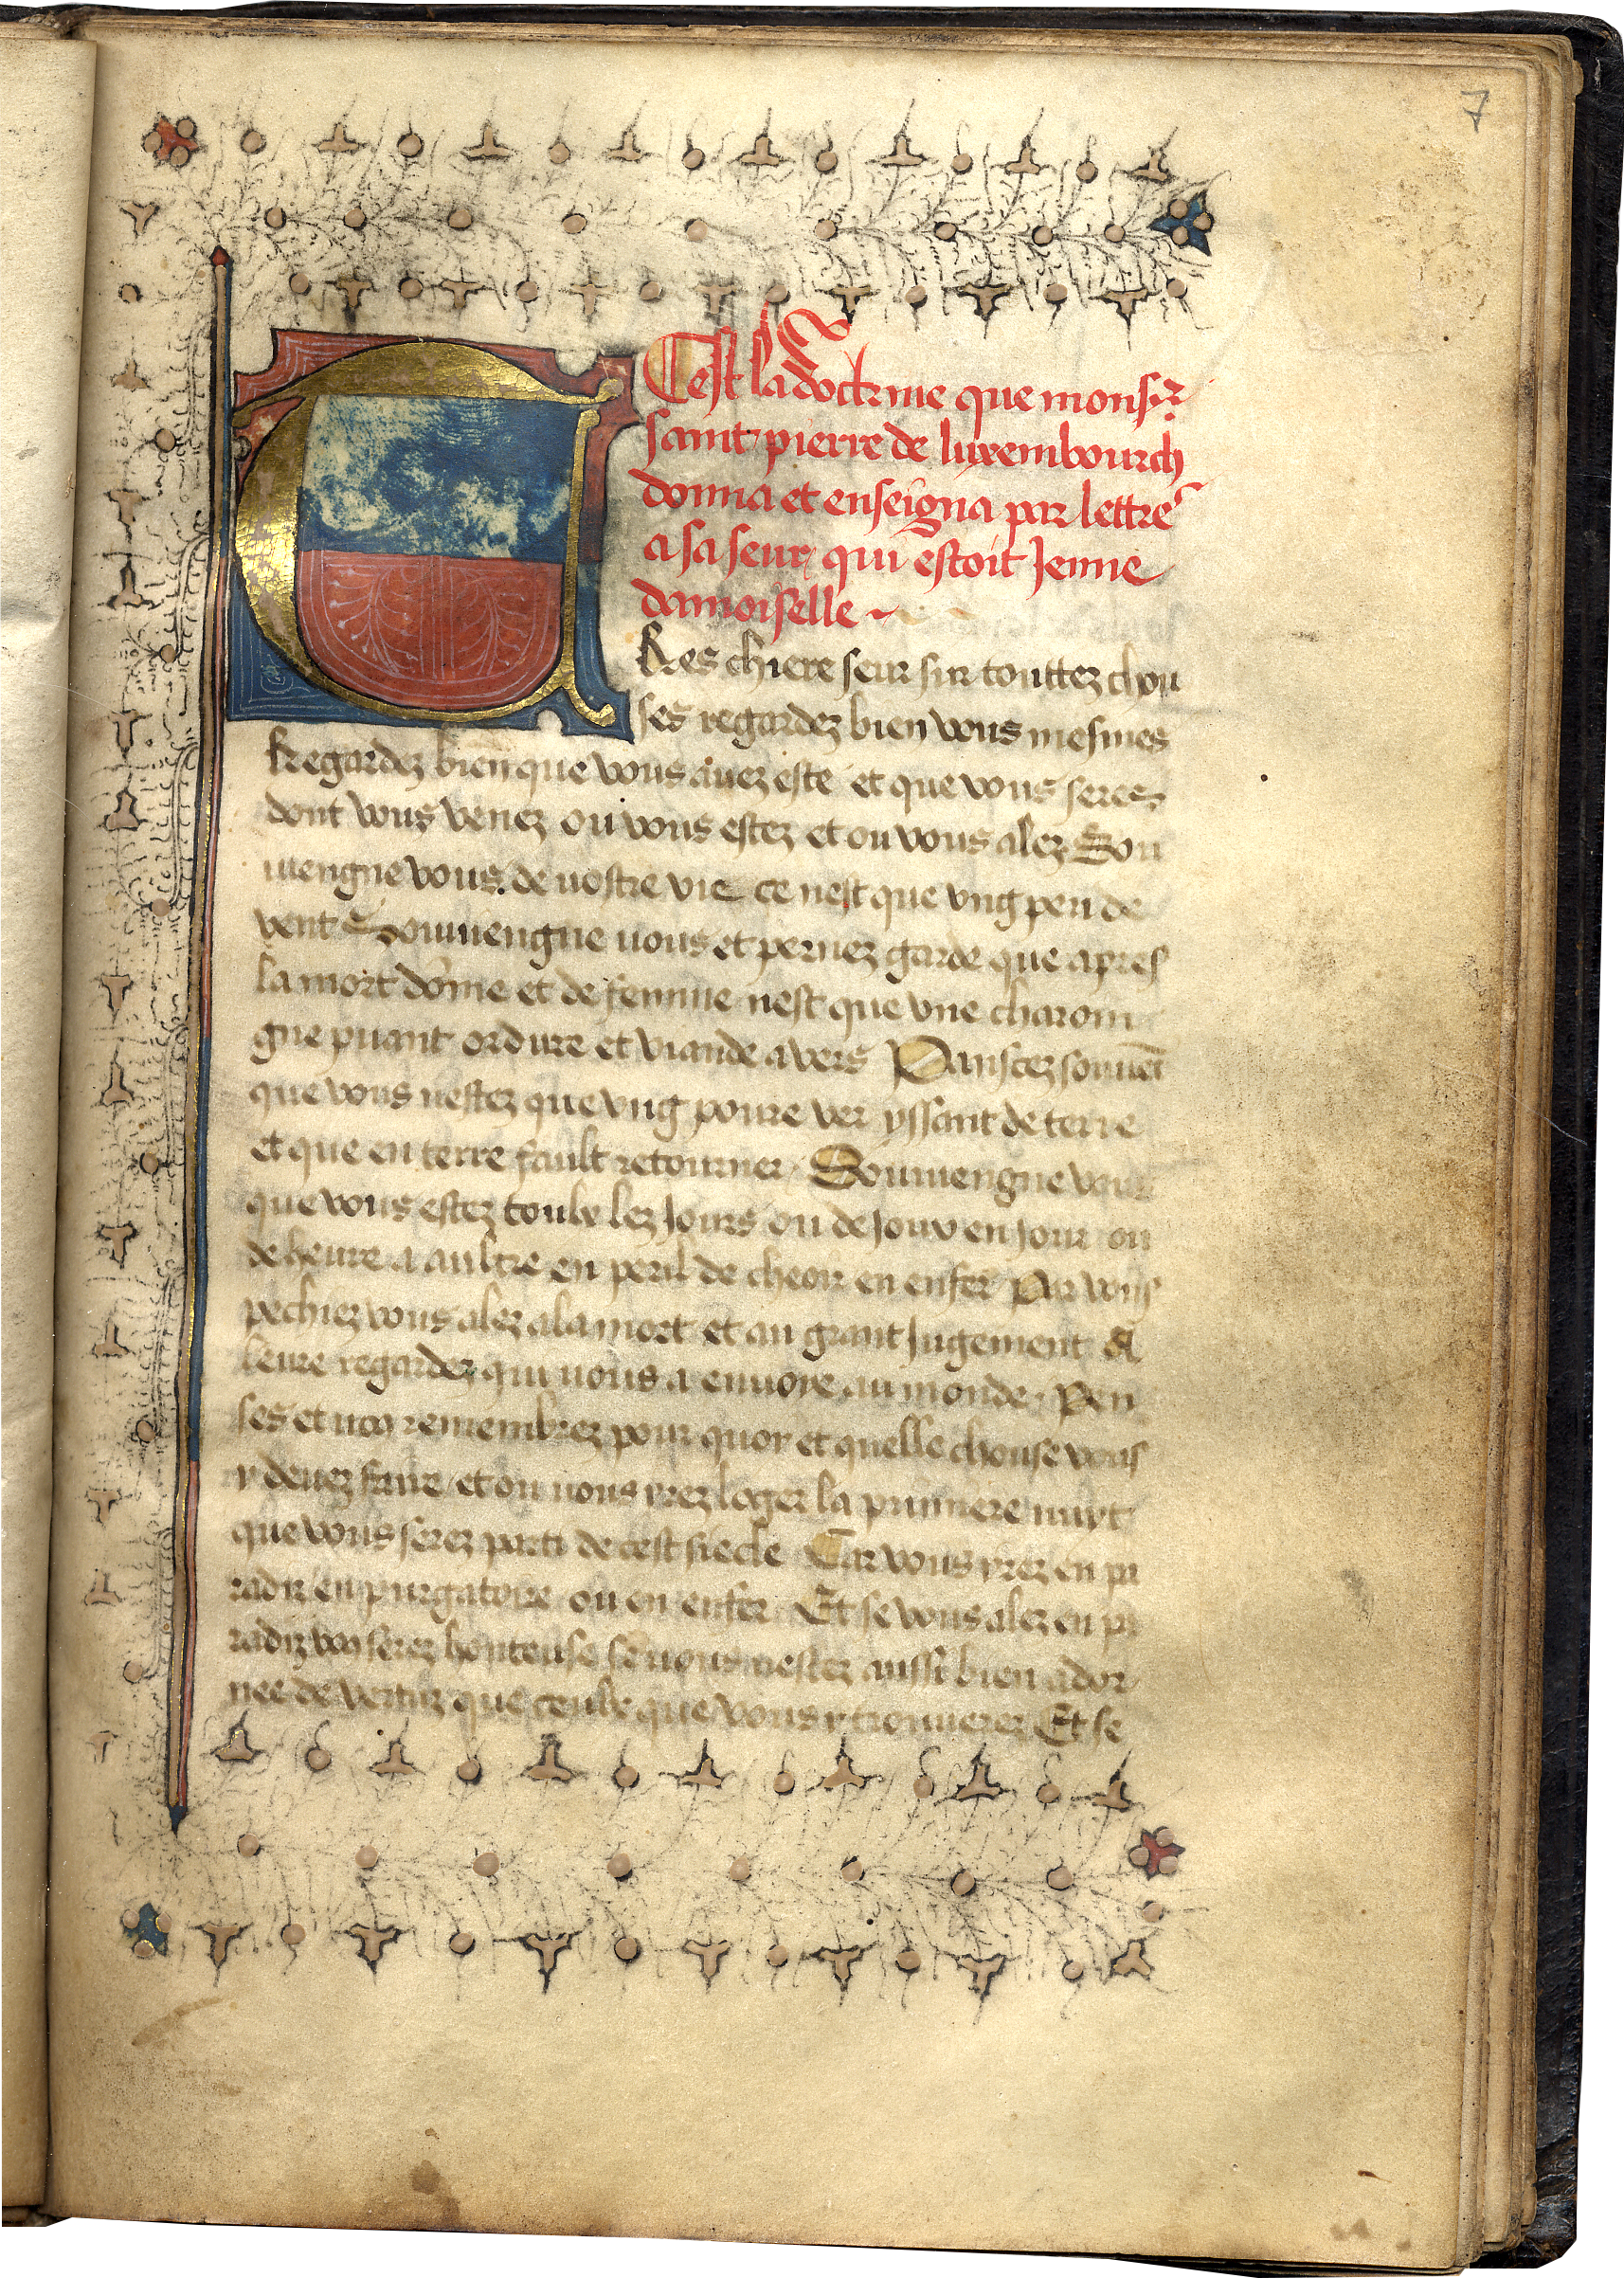 7
Cest la doctrine que monsr
saint pierre de luxembourch
donna et enseigna par lettre
a sa seur qui estoit Jenne
damoiselle
Tres chiere seur sur touttez chou
ses regardez bien vous mesmes
Regardez bien que vous auez este et que vous seres
dont vous venez ou vous estez et ou vous alez Sou
uiengne vous de vostre vie ce nest que vng peu de
vent Souuiengne vous et pernez garde que apres
la mort dome et de femme nest que vne charoin
gne puant ordure et viande a vers Pansez souuet
que vous nestez que vng poure ver yssant de terre
et que en terre fault retourner Souuiengne vous
que vous estez toulx lez Jours ou de Jour en Jour ou
de heure a aultre en peril de cheoir en enfer Par vous
pechiez vous alez a la mort et au grant Jugement A
leure regardez qui vous a enuoye au monde Pen
ses et remembrez pour quoy et quelle chouse vous
y deuez faire et ou vous yrez loger la premiere nuyt
que vous serez parti de cest siecle Car vous yrez en pa
radiz en purgatoire ou en enfer Et se vous alez en pa
radiz serez honteuse se vous nestez aussi bien ador
nee de vertuz que ceulx que vous y trouuerez Et se